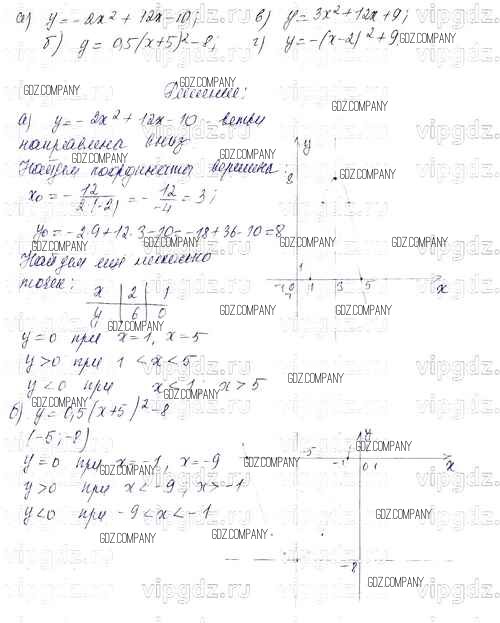 а) y = -2x² + 12x - 10; в) y = 3x² + 12x + 9;
б) y = 0,5(x+5)² - 8; г) y = -(x-2)² + 9
GDZ.COMPANY
Решение:
а) y = -2x² + 12x - 10 - ветви
направлена вниз
Найдем координаты вершины:
x₀ = - 12 / 2·(-2) = - 12 / -4 = 3;
y₀ = -2·9 + 12·3 - 10 = -18 + 36 - 10 = 8
Найдем еще несколько
точек:
x | 2 | 1
y | 6 | 0
y = 0 при x = 1, x = 5
y > 0 при 1 < x < 5
y < 0 при x < 1; x > 5
y
8
1
-1 0 1 3 5 x
-1
б) y = 0,5(x+5)² - 8
(-5; -8)
y = 0 при x = -1, x = -9
y > 0 при x < -9, x > -1
y < 0 при -9 < x < -1
y
-5 -1 0 1 x
-8
vipgdz.ru